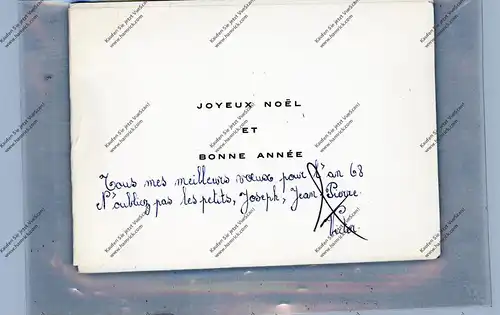 JOYEUX NOËL
ET
BONNE ANNÉE
Tous mes meilleurs vœux pour l'an 68
N'oubliez pas les petits, Joseph, Jean-Pierre
Kinden Sie jetzt VueScan!
www.hamrick.com